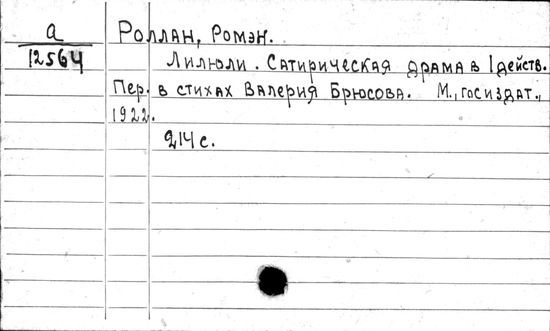 а
12564
Роллан, Ромэн.
Лилюли. Сатирическая драма в 1 действ.
Пер. в стихах Валерия Брюсова. М., госиздат.,
1922.
214 с.